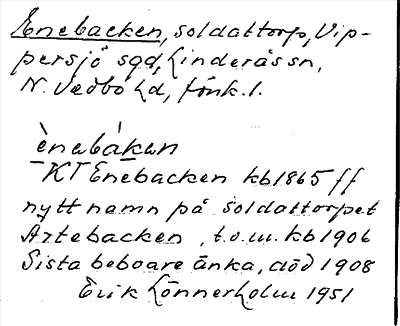 Enebacken, soldattorp, Vip-
persjö sgd, Linderås sn,
N. Vedbo hd, Jönk. l.
ènabákan
KT Enebacken kb 1865 ff
nytt namn på soldattorpet
Ärtebacken, t.o.m. kb 1906
Sista beboare änka, död 1908
Erik Lönnerholm 1951